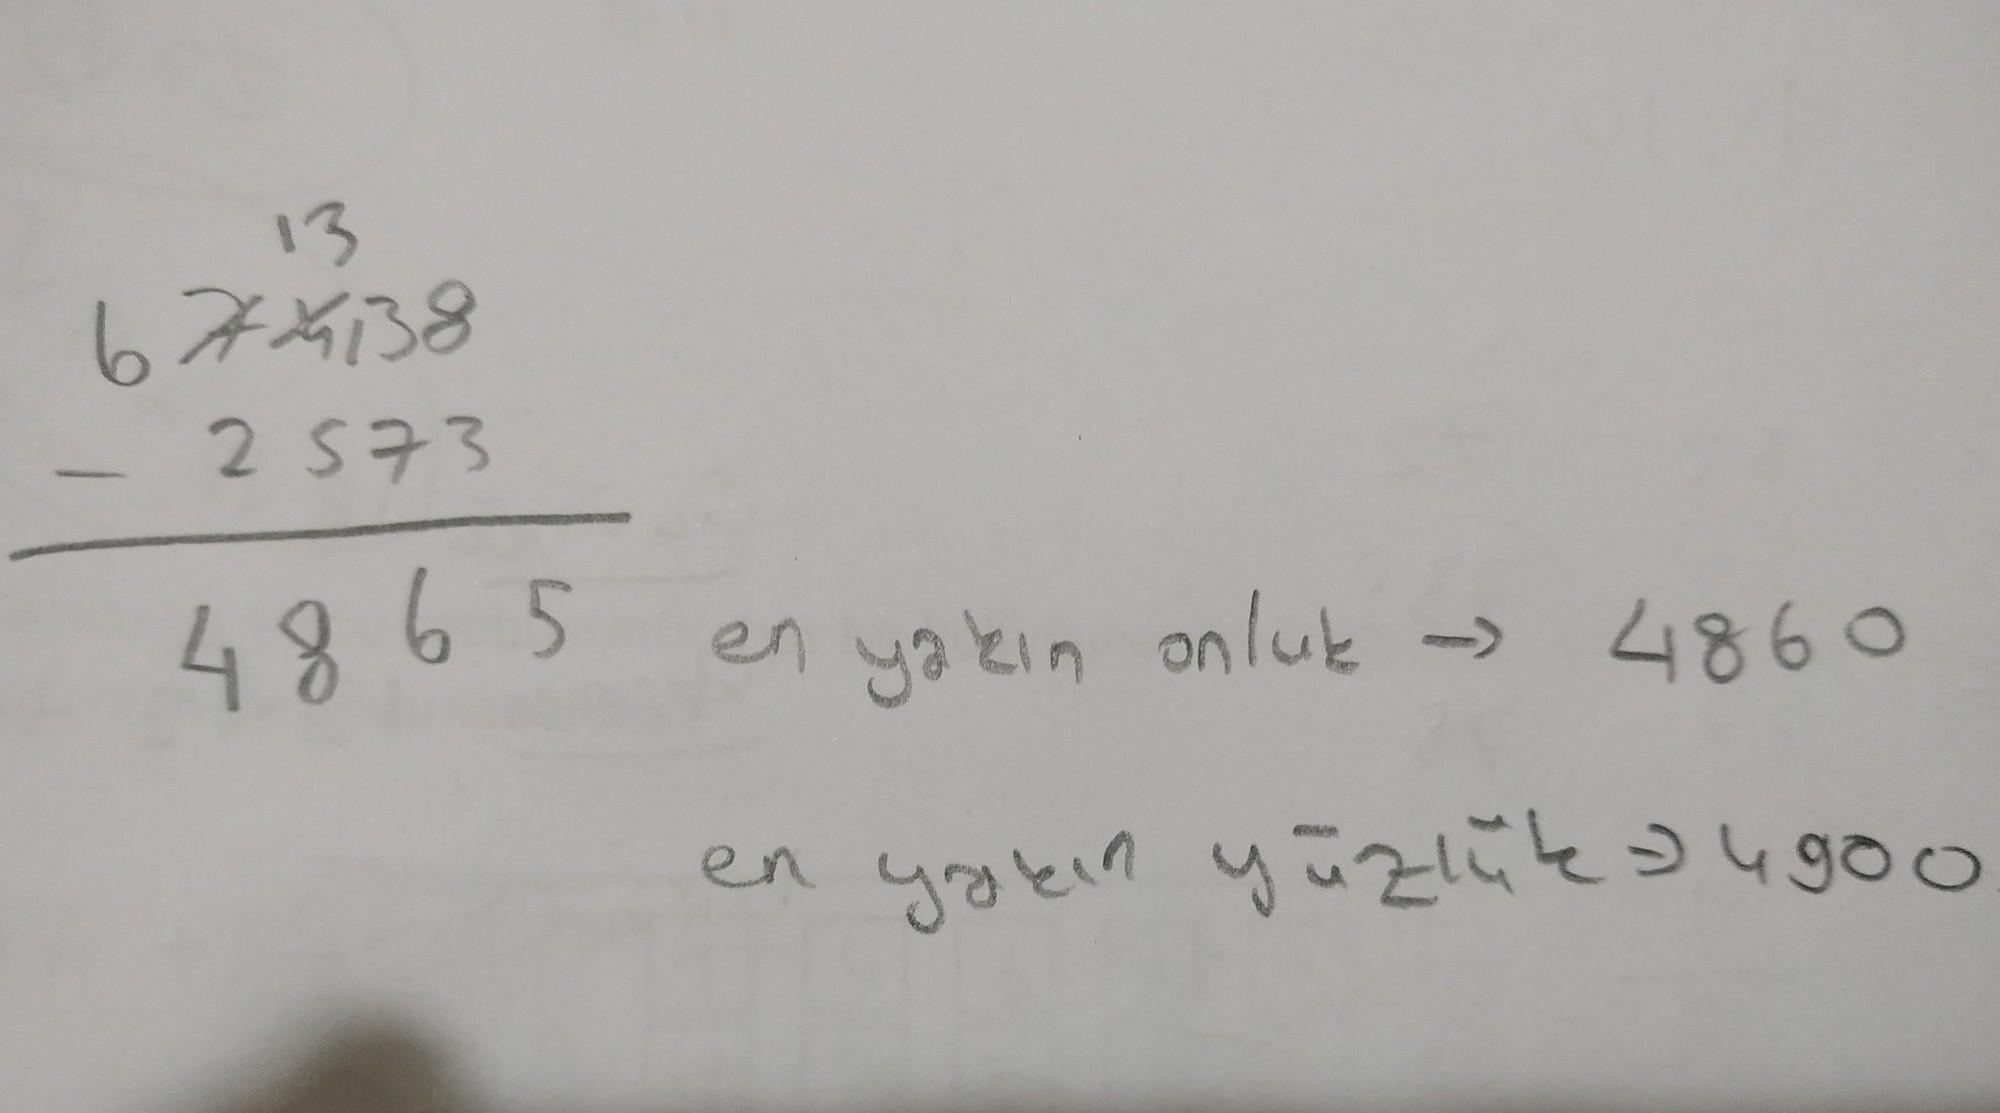 13
6 7 4 13 8
- 2 5 7 3
4 8 6 5 en yakın onluk → 4860
en yakın yüzlük ⇒ 4900